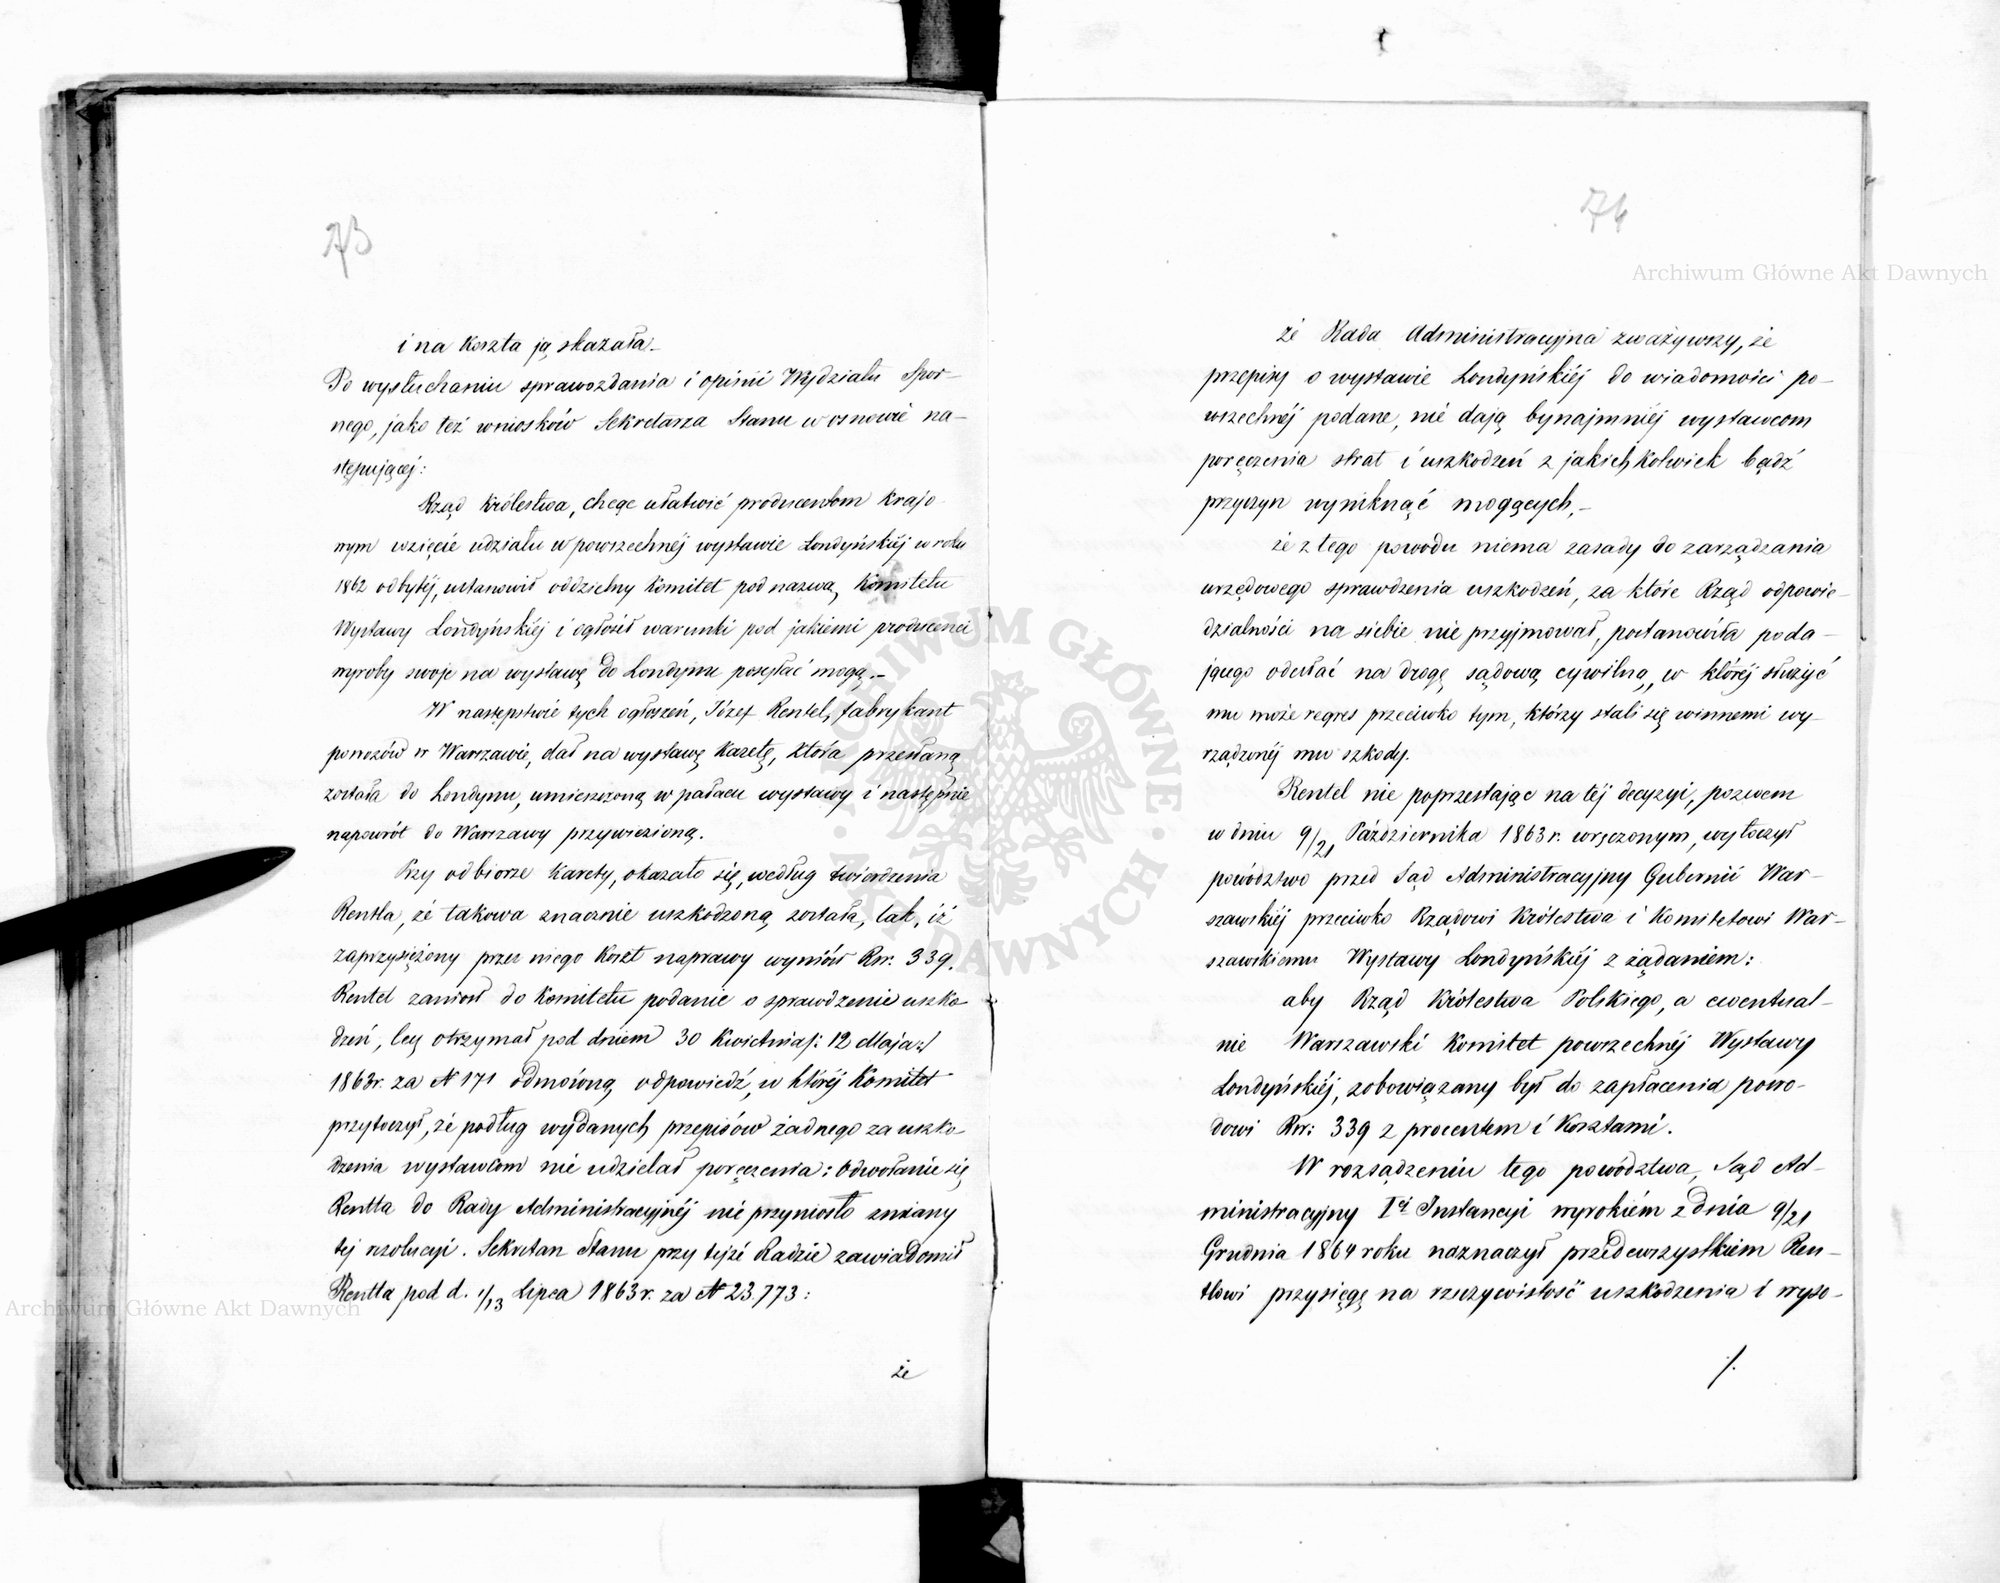 73
i na koszta ją skazała.
Po wysłuchaniu sprawozdania i opinii Wydziału Spor-
nego, jako też wniosków Sekretarza Stanu w osnowie na-
stępującéj:
Rząd Królestwa, chcąc ułatwić producentom krajo-
wym wzięcie udziału w powszechnéj wystawie Londyńskiéj w roku
1862 odbytéj, ustanowił oddzielny Komitet pod nazwą Komitetu
Wystawy Londyńskiéj i ogłosił warunki pod jakiemi producenci
wyroby swoje na wystawę do Londynu posyłać mogą.-
W następstwie tych ogłoszeń, Józef Rentel, fabrykant
powozów w Warszawie, dał na wystawę karetę, która przesłaną
została do Londynu, umieszczoną w pałacu wystawy i następnie
napowrót do Warszawy przywiezioną.
Przy odbiorze karety, okazało się, według twierdzenia
Rentla, że takowa znacznie uszkodzoną została, tak, iż
zaprzysiężony przez niego koszt naprawy wyniósł Rsr. 339.
Rentel zaniósł do Komitetu podanie o sprawdzenie uszko-
dzeń, lecz otrzymał pod dniem 30 Kwietnia/: 12 Maja:/
1863r. za N 171 odmówną odpowiedź, w któréj Komitet
przytoczył, że podług wydanych przepisów żadnego za uszko-
dzenia wystawcom nie udzielał poręczenia: Odwołanie się
Rentla do Rady Administracyjnéj nie przyniosło zmiany
téj rezolucyi. Sekretarz Stanu przy tejże Radzie zawiadomił
Rentla pod d. 1/13 Lipca 1863r. za N 23,773:
że
74
że Rada Administracyjna zważywszy, że
przepisy o wystawie Londyńskiéj do wiadomości po-
wszechnéj podane, nie dają bynajmniéj wystawcom
poręczenia strat i uszkodzeń z jakichkolwiek bądź
przyczyn wyniknąć mogących,-
że z tego powodu niema zasady do zarządzania
urzędowego sprawdzenia uszkodzeń, za które Rząd odpowie-
dzialności na siebie nie przyjmował, postanowiła poda-
jącego odesłać na drogę sądową cywilną, w któréj służyć
mu może regres przeciwko tym, którzy stali się winnemi wy-
rządzonéj mu szkody.
Rentel nie poprzestając na téj decyzyi, pozwem
w dniu 9/21 Października 1863r. wręczonym, wytoczył
powództwo przed Sąd Administracyjny Gubernii War-
szawskiéj przeciwko Rządowi Królestwa i Komitetowi War-
szawskiemu Wystawy Londyńskiéj z żądaniem:
aby Rząd Królestwa Polskiego, a ewentual-
nie Warszawski Komitet powszechnéj Wystawy
Londyńskiéj, zobowiązany był do zapłacenia powo-
dowi Rsr: 339 z procentem i kosztami.
W rozsądzeniu tego powództwa, Sąd Ad-
ministracyjny Iéj Instancyi wyrokiem z dnia 9/21
Grudnia 1864 roku naznaczył przedewszystkiem Ren-
tlowi przysięgę na rzeczywistość uszkodzenia i wyso-
/.
Archiwum Główne Akt Dawnych
Archiwum Główne Akt Dawnych
ARCHIWUM GŁÓWNE AKT DAWNYCH